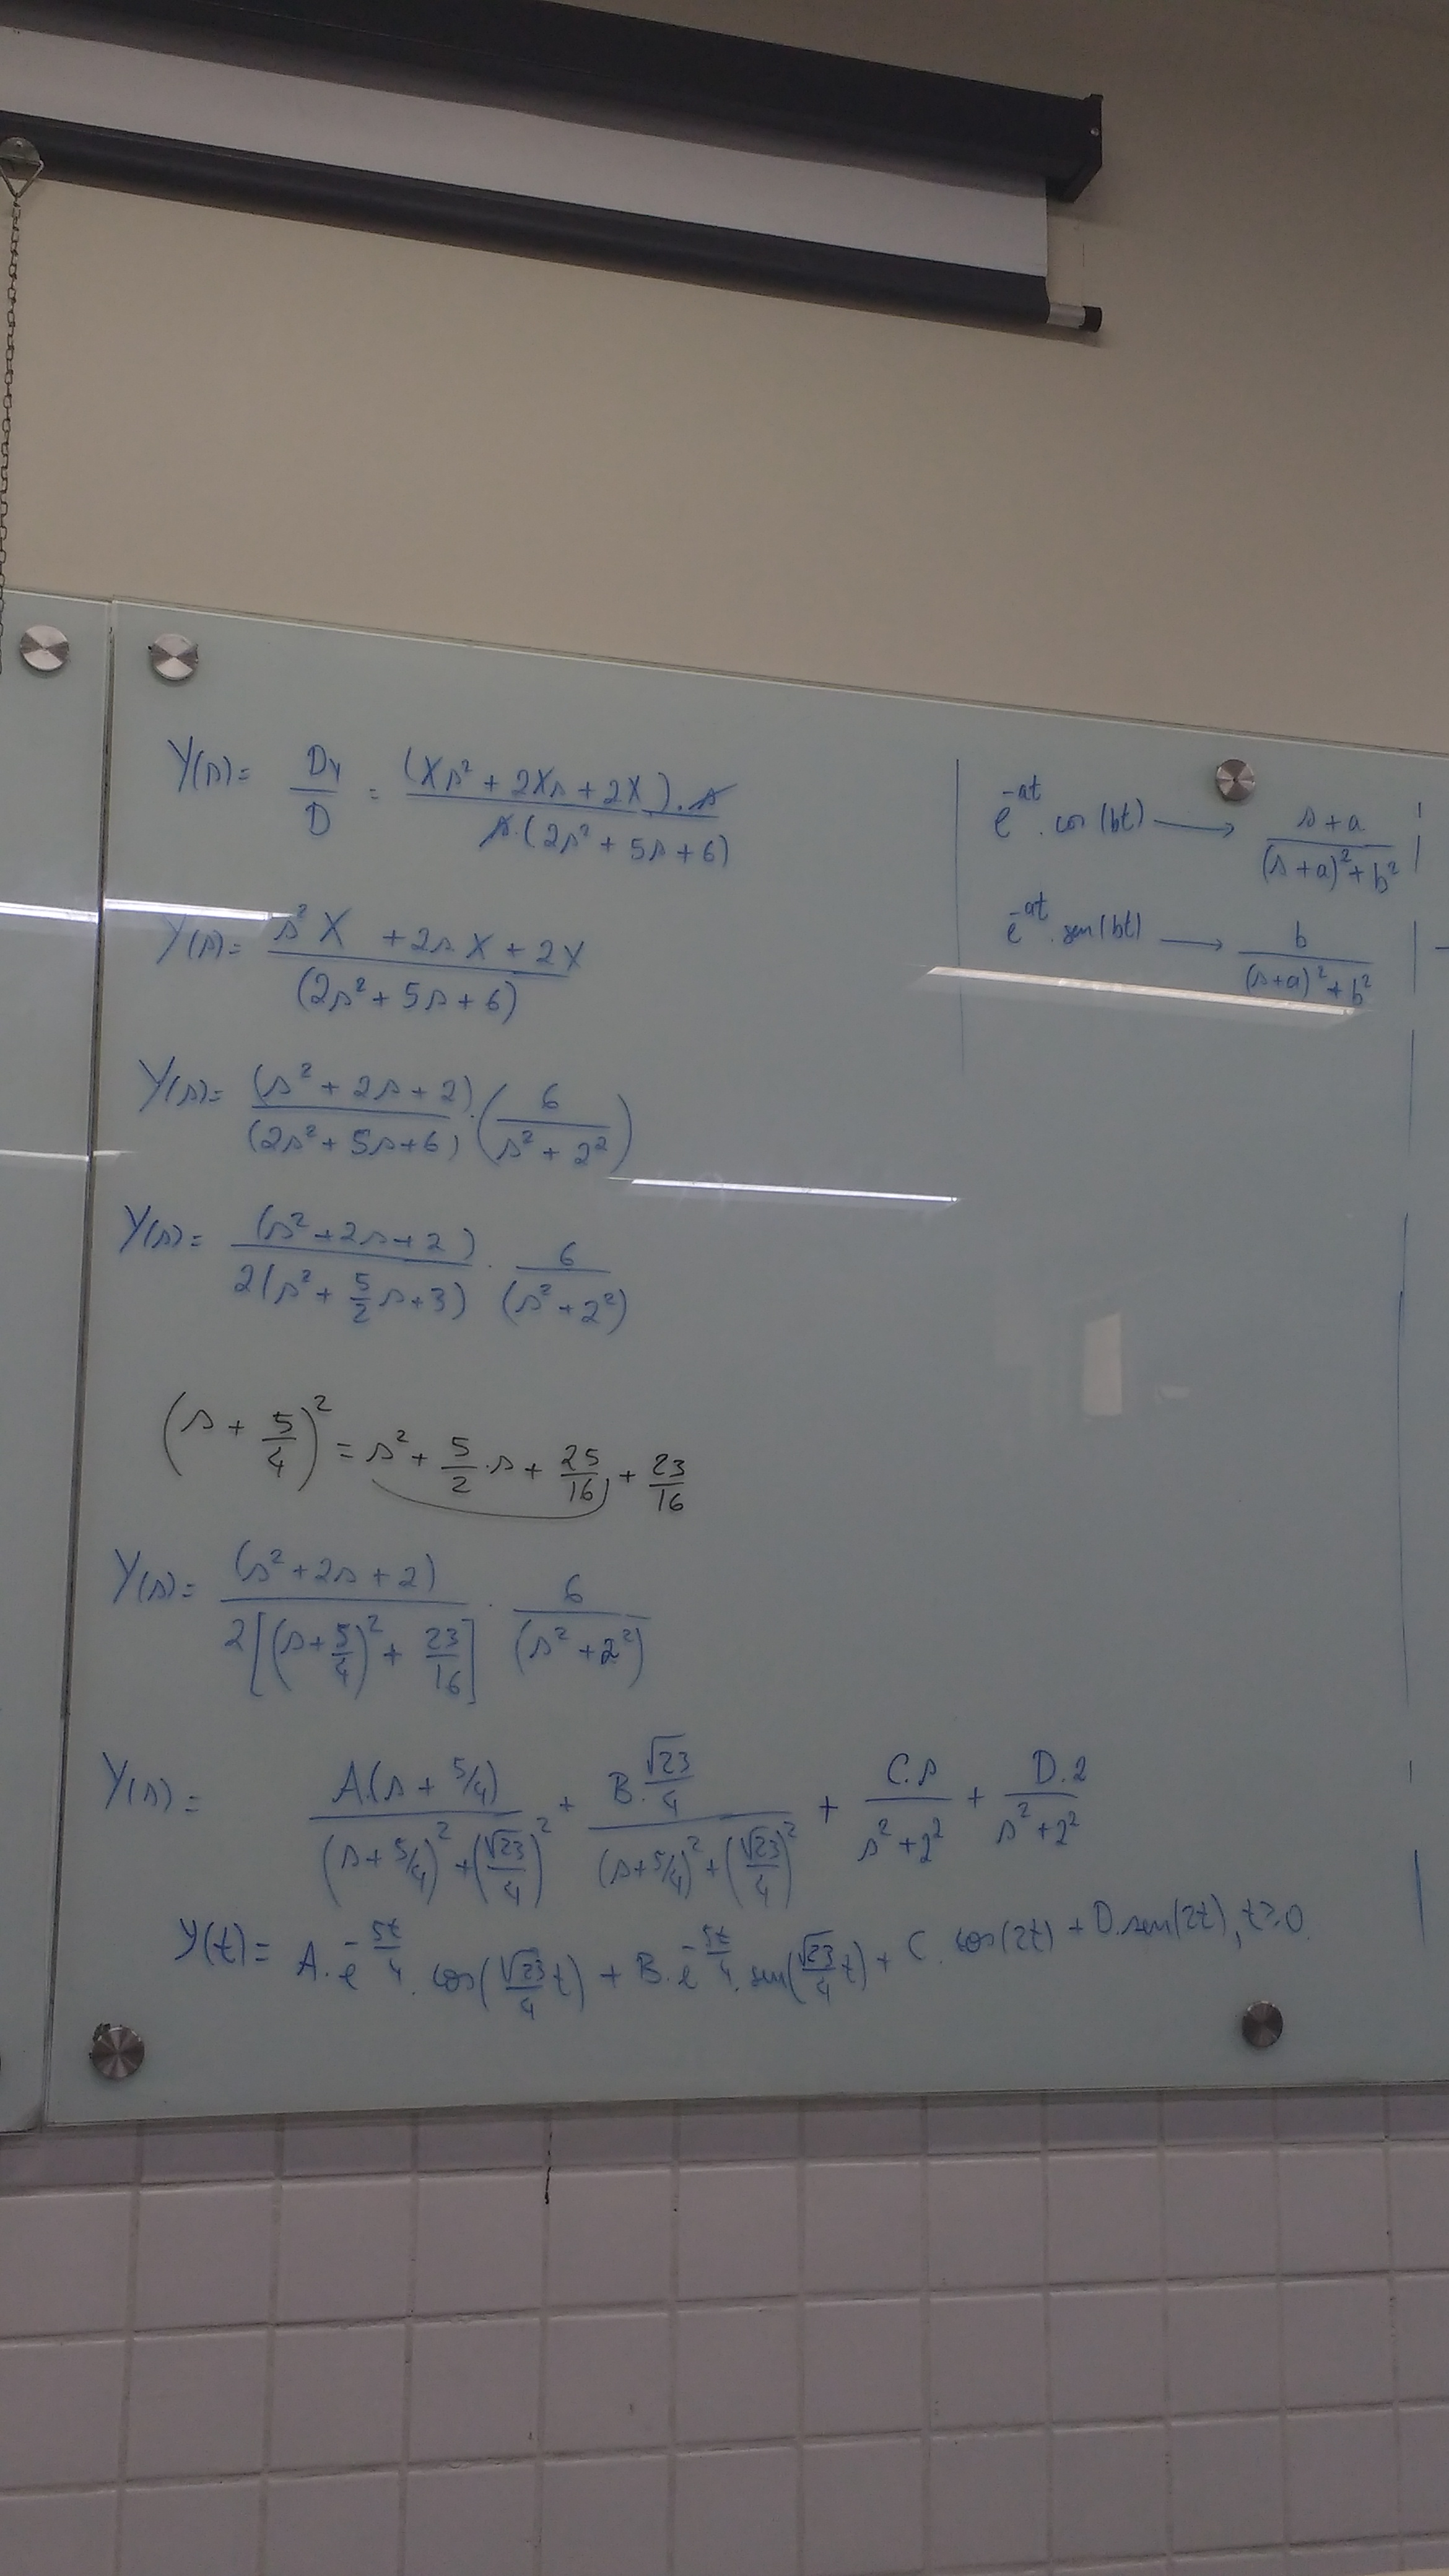 Y(s) = Dy/D = (Xs² + 2Xs + 2X).s / s.(2s² + 5s + 6)
Y(s) = s²X + 2sX + 2X / (2s² + 5s + 6)
Y(s) = (s² + 2s + 2)/(2s² + 5s + 6) . (6/(s² + 2²))
Y(s) = (s² + 2s + 2)/2(s² + 5/2 s + 3) . 6/(s² + 2²)
(s + 5/4)² = s² + 5/2 . s + 25/16 + 23/16
Y(s) = (s² + 2s + 2)/2[(s + 5/4)² + 23/16] . 6/(s² + 2²)
Y(s) = A.(s + 5/4)/((s + 5/4)² + (√23/4)²) + B.√23/4/((s + 5/4)² + (√23/4)²) + C.s/(s² + 2²) + D.2/(s² + 2²)
y(t) = A.e^(-5t/4) . cos(√23/4 t) + B.e^(-5t/4) . sen(√23/4 t) + C. cos(2t) + D.sen(2t), t≥0
e^(-at) . cos(bt) → s+a/((s+a)² + b²)
e^(-at) . sen(bt) → b/((s+a)² + b²)